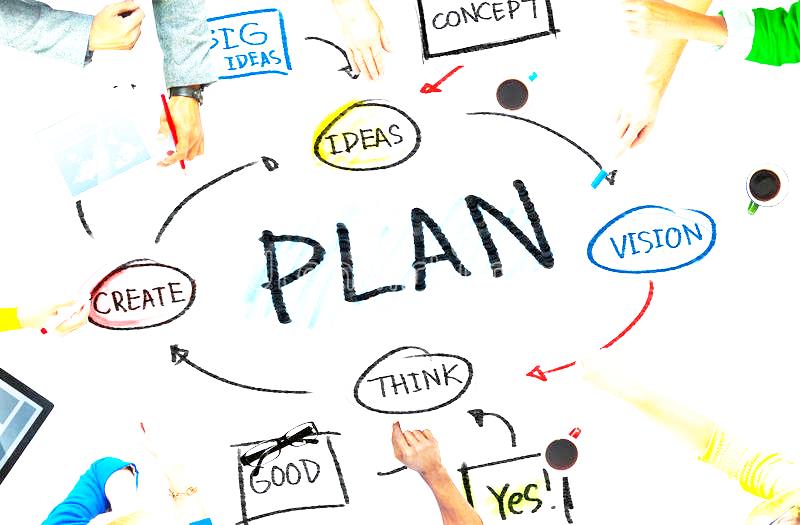 BIG
IDEAS
CONCEPT
IDEAS
PLAN
VISION
CREATE
THINK
GOOD
Yes!